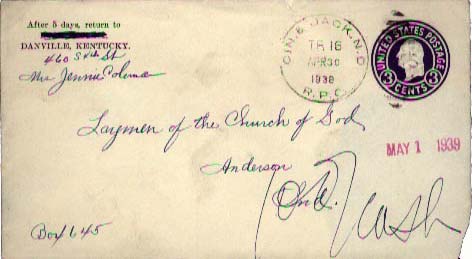 After 5 days, return to
DANVILLE, KENTUCKY.
460 S 4th St
Mrs Jennie
CIN. & JACK. N.D.
TR 16
APR 30
1939
R.P.O.
UNITED STATES POSTAGE
3 CENTS 3
Laymen of the Church of God
Anderson
Ind.
MAY 1 1939
Cash
Box 645